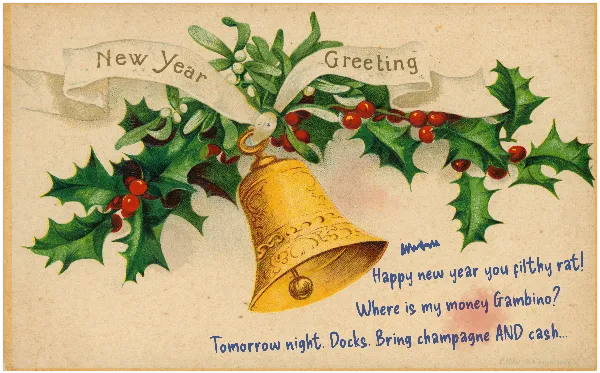 New Year Greeting
Happy new year you filthy rat!
Where is my money Gambino?
Tomorrow night. Docks. Bring champagne AND cash...